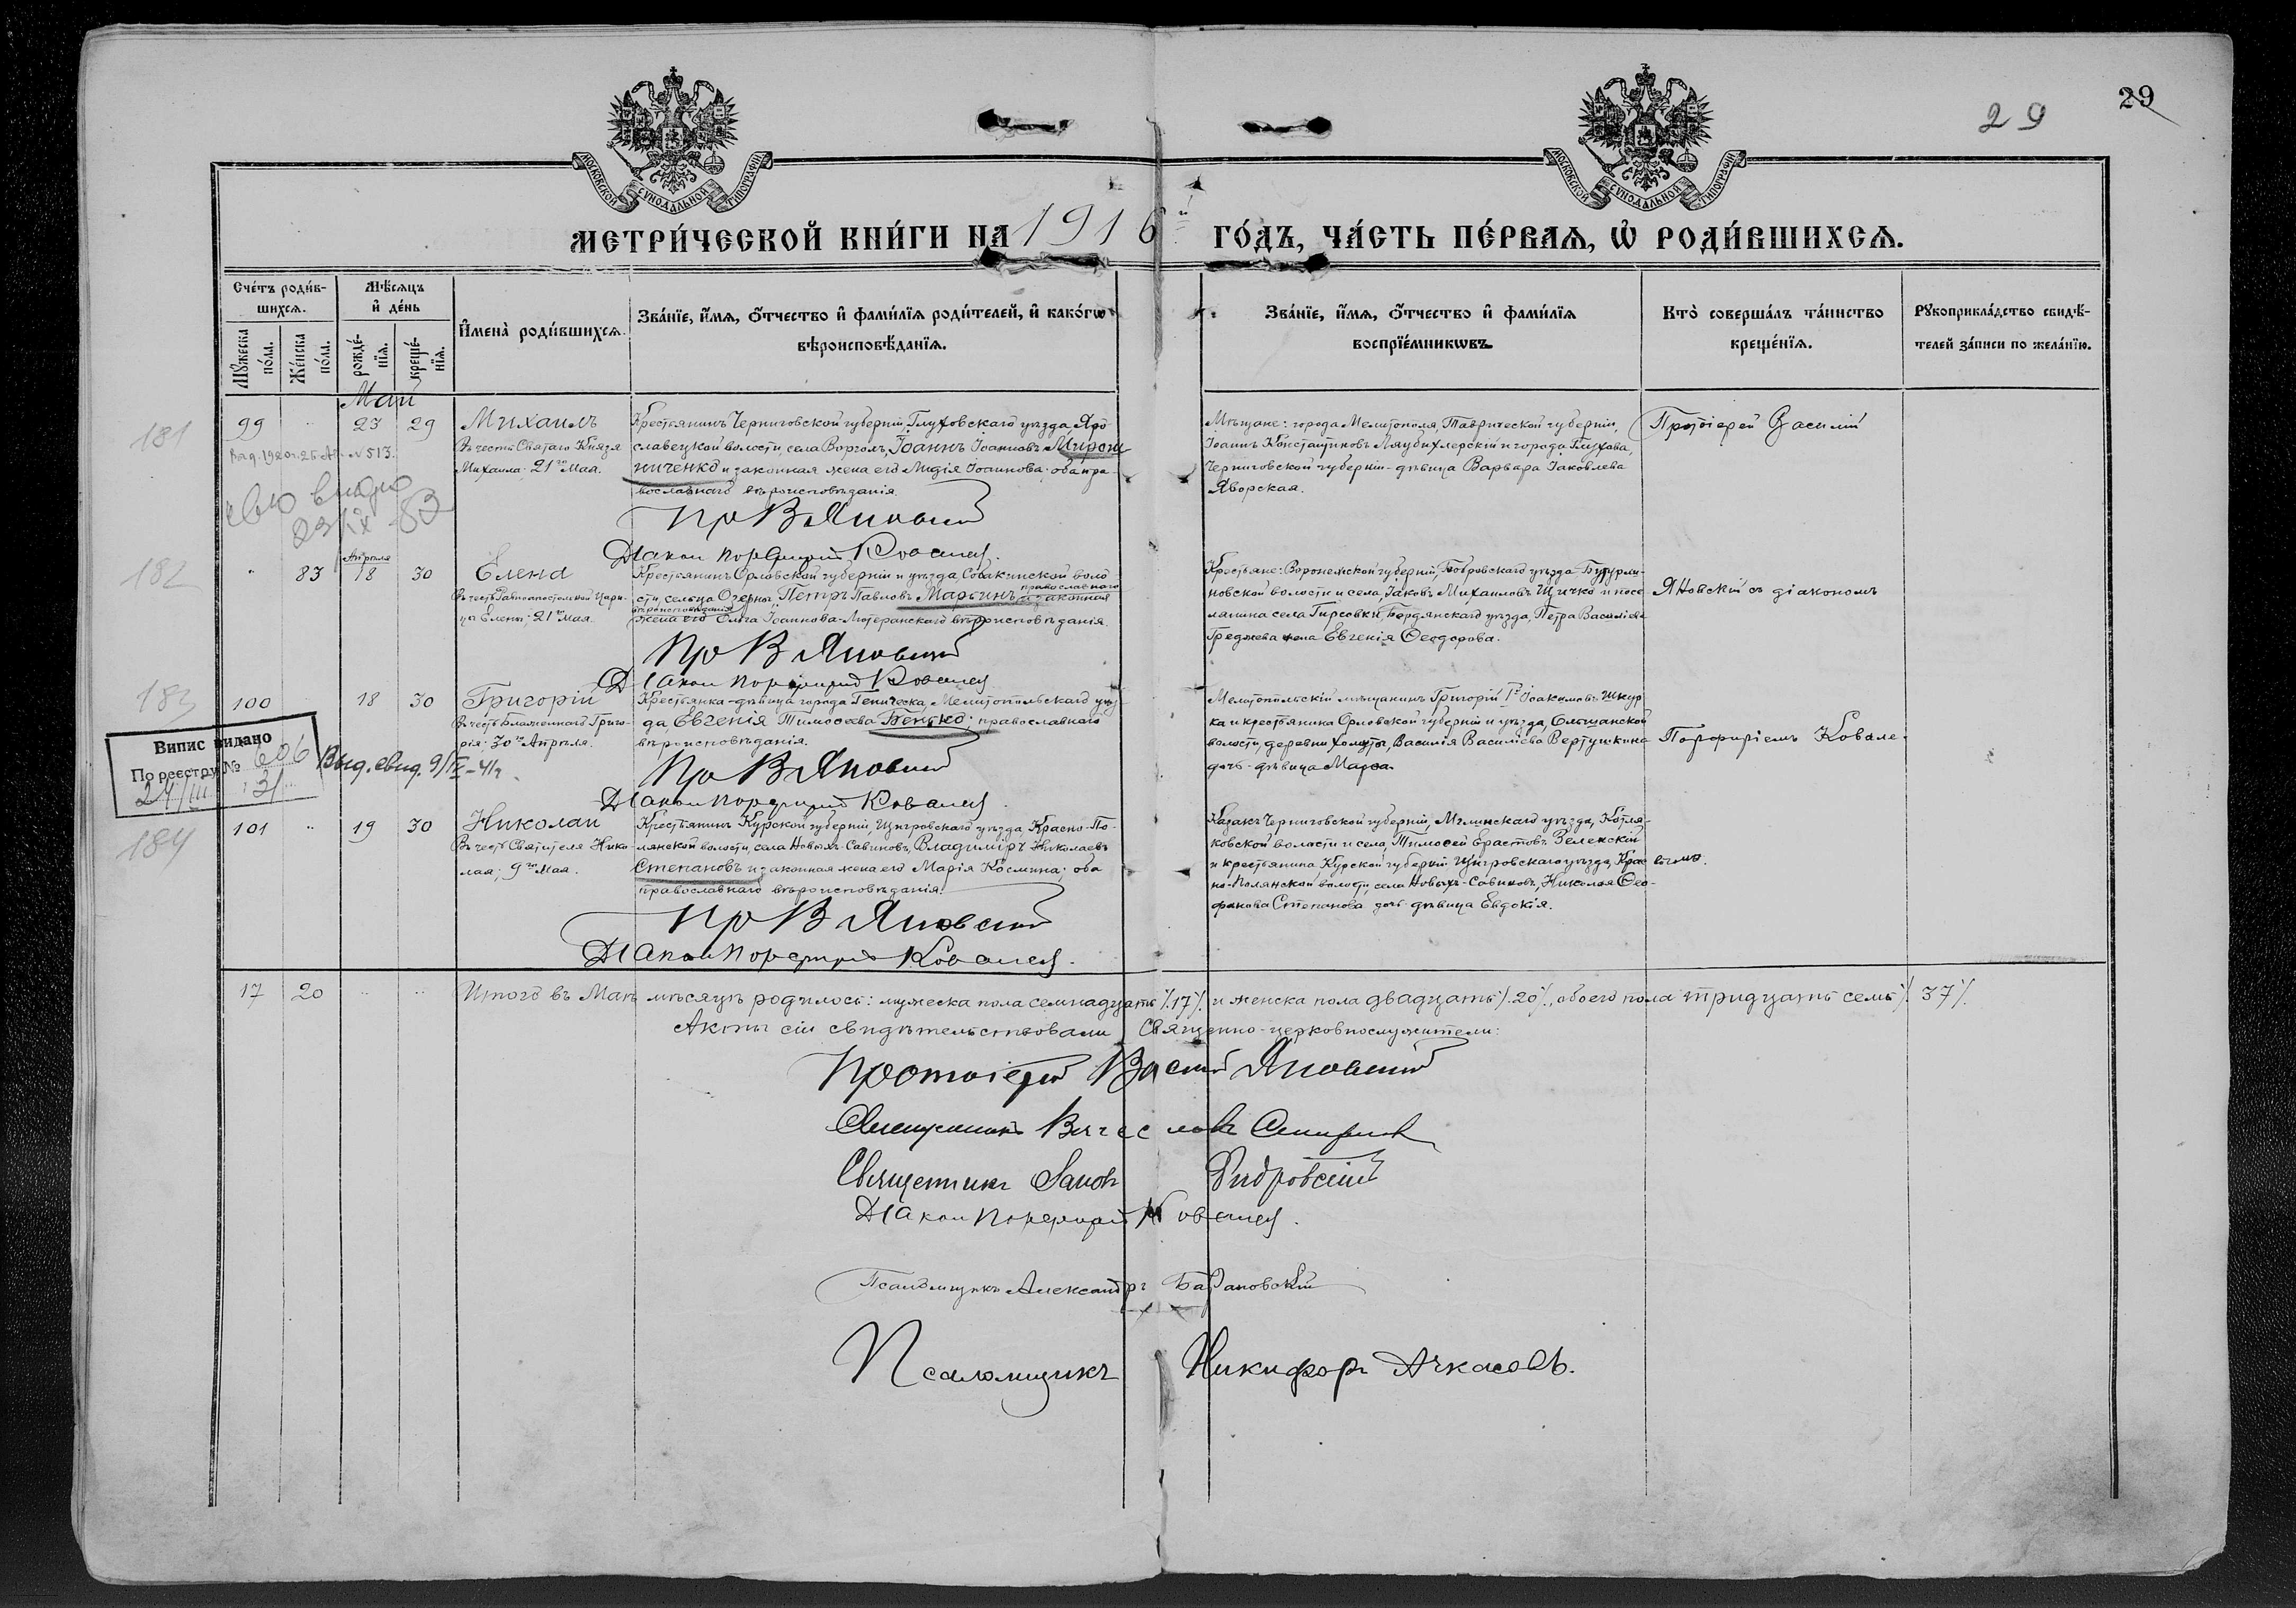 29
29
МОСКОВСКОЙ СУНОДАЛЬНОЙ ТИПОГРАФІИ
МОСКОВСКОЙ СУНОДАЛЬНОЙ ТИПОГРАФІИ
МЕТРИ́ЧЕСКОЙ КНИ́ГИ НА 1916 ГО́ДЪ, ЧА́СТЬ ПЕ́РВАЯ, Ѡ РОДИ́ВШИХСЯ.
Сче́тъ роди́в-
шихся.
Мꙋжеска по́ла.
Же́нска по́ла.
Мѣ́сяцъ
и҆ де́нь
рожде́-
нїя.
креще́-
нїя.
И҆мена̀ роди́вшихся.
Зва́нїе, и҆́мя, ѻ҆́тчество и҆ фами́лїя роди́телей, и҆ како́гѡ
вѣроисповѣ́данїя.
Зва́нїе, и҆́мя, ѻ҆́тчество и҆ фами́лїя
воспрїе́мникѡвъ.
Кто̀ соверша́лъ та́инство
креще́нїя.
Рꙋкоприкла́дство свидѣ́-
телей за́писи по жела́нїю.
Май
181
99
23
29
Михаилъ
Въ честь Святаго Князя
Михаила; 21го Мая.
№ 513.
Крестьянинъ Черниговской губерніи, Глуховскаго уѣзда, Яро
славецкой волости, села Ворголъ, Іоаннъ Іоанновъ Мирош
ниченко и законная жена его Лидія Іоаннова; оба пра-
вославнаго вѣроисповѣданія.
Пр В Яновскій
Діакон Порфирій Ковалев.
Мѣщане: города Мелитополя, Таврической губерніи,
Іоаннъ Константиновъ и города Глухова,
Черниговской губерніи - дѣвица Варвара Іаковлева
Яворская.
Протоіерей Василій
182
83
Апрѣля
18
30
Елена
Въ честь Равноапостольной Цари-
цы Елены; 21го Мая.
Крестьянинъ Орловской губерніи и уѣзда, Собакинской воло
сти, сельца Озерны, Петръ Павловъ Марьинъ православнаго
вѣроисповѣданія и законная
жена его Ольга Іоаннова - Лютеранскаго вѣроисповѣданія.
Пр В Яновскій
Діакон Порфирій Ковалев
Крестьяне: Воронежской губерніи, Бобровскаго уѣзда,
новской волости и села, Іаковъ Михаиловъ Щичко и посе
лянина села Гирсовки, Бердянскаго уѣзда, Петра Василіева
жена Евгенія Ѳеодорова.
Яновскій съ діакономъ
183
100
18
30
Григорій
Въ честь Блаженнаго Григо-
рія; 30го Апрѣля.
Крестьянка - дѣвица города Геническа, Мелитопольскаго уѣз
да, Евгенія Тимоѳеева Бенько; православнаго
вѣроисповѣданія.
Пр В Яновскій
Діакон Порфирій Ковалев
Мелитопольскій мѣщанинъ Григорій Іоакимовъ Шкур
ка и крестьянина Орловской губерніи и уѣзда, Ольшанской
волости, деревни Хомуты, Василія Василіева Вертушкина
дочь - дѣвица Марѳа.
Порфиріемъ Ковале-
Випис видано
По реєстру № 606
24/III 31
Выд. свид. 9/IX-41г.
184
101
19
30
Николай
Въ честь Святителя Нико
лая; 9го Мая.
Крестьянинъ Курской губерніи, Щигровскаго уѣзда, Красно-По-
лянской волости, села Новыхъ-Савиновъ, Владиміръ Николаевъ
Степановъ и законная жена его Марія Космина; оба
православнаго вѣроисповѣданія.
Пр В Яновскій
Діакон Порфирій Ковалев.
Казакъ Черниговской губерніи, Мглинскаго уѣзда, Котля-
ковской волости и села, Тимоѳей Ерастовъ Зеленскій
и крестьянина Курской губерніи Щигровскаго уѣзда, Крас
но-Полянской волости, села Новыхъ-Савиновъ, Николая Ѳео-
фанова Степанова дочь - дѣвица Евдокія.
вымъ.
17
20
Итого въ Маѣ мѣсяцѣ родилось: мужеска пола семнадцать /.17/. и женска пола двадцать /.20/., обоего пола тридцать семь /. 37/.
Акты сіи свидѣтельствовали Священно-церковнослужители:
Протоіерей Василій Яновскій
Священникъ Вячеславъ
Священникъ
Діакон Порфирій Ковалев.
Псаломщикъ Александръ Барановскій
Псаломщикъ Никифоръ Ачкасовъ.